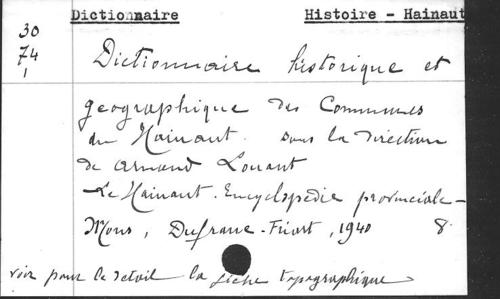 Dictionnaire Histoire - Hainaut
30
74
1
Dictionnaire historique et
géographique des Communes
du Hainaut. sous la direction
de Armand Louant
Le Hainaut. Encyclopédie provinciale -
Mons, Dufrane-Friart, 1940 8.
voir pour le détail la fiche topographique.